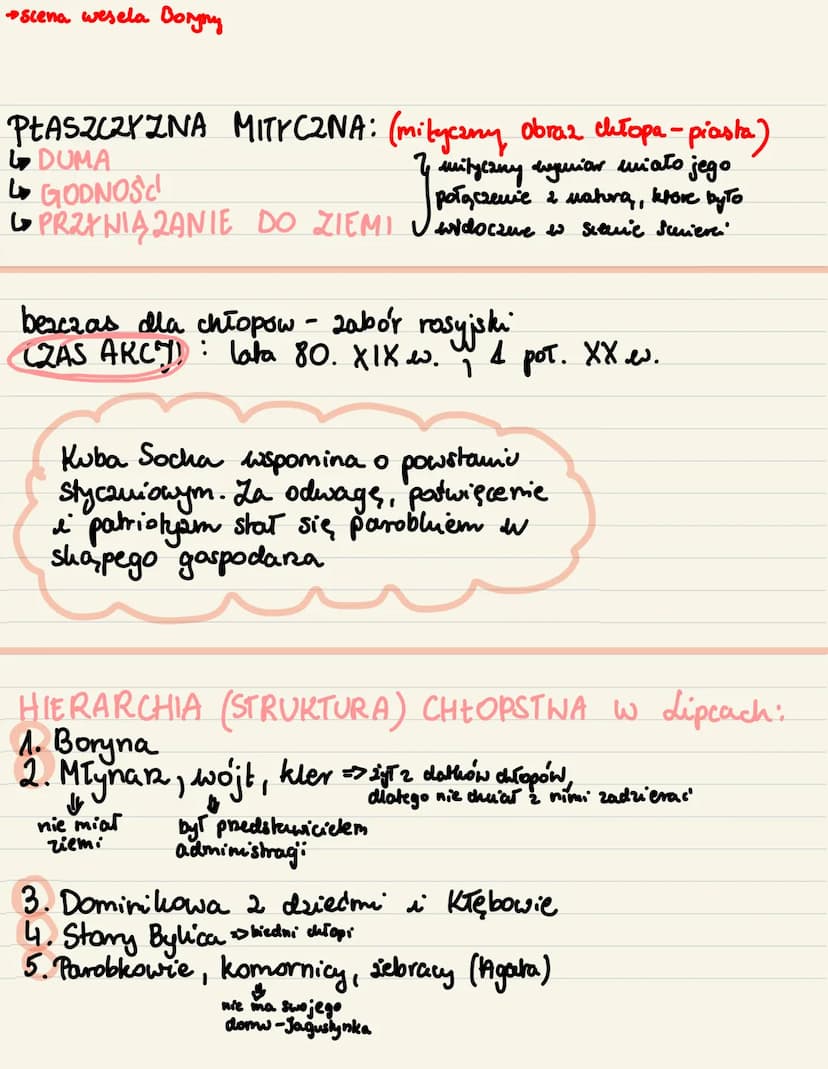 →scena wesela Boryny
PŁASZCZYZNA MITYCZNA: (mityczny obraz chłopa-piasta)
↳ DUMA
↳ GODNOŚĆ
↳ PRZYWIĄZANIE DO ZIEMI
mityczny wymiar miało jego
połączenie z naturą, które było
widoczne w scenie śmierci
bezczas dla chłopów - zabór rosyjski
CZAS AKCJI: lata 80. XIX w. i 1 poł. XX w.
Kuba Socha wspomina o powstaniu
styczniowym. Za odwagę, poświęcenie
i patriotyzm stał się parobkiem w
skąpego gospodarza
HIERARCHIA (STRUKTURA) CHŁOPSTWA w Lipcach:
1. Boryna
2. Młynarz, wójt, kler => żył z datków chłopów,
dlatego nie chciał z nimi zadzierać
nie miał
ziemi
był przedstawicielem
administracji
3. Dominikowa z dziećmi i Kłębowie
4. Stary Bylica => biedni chłopi
5. Parobkowie, komornicy, żebracy (Agata)
nie ma swojego
domu - Jagustynka